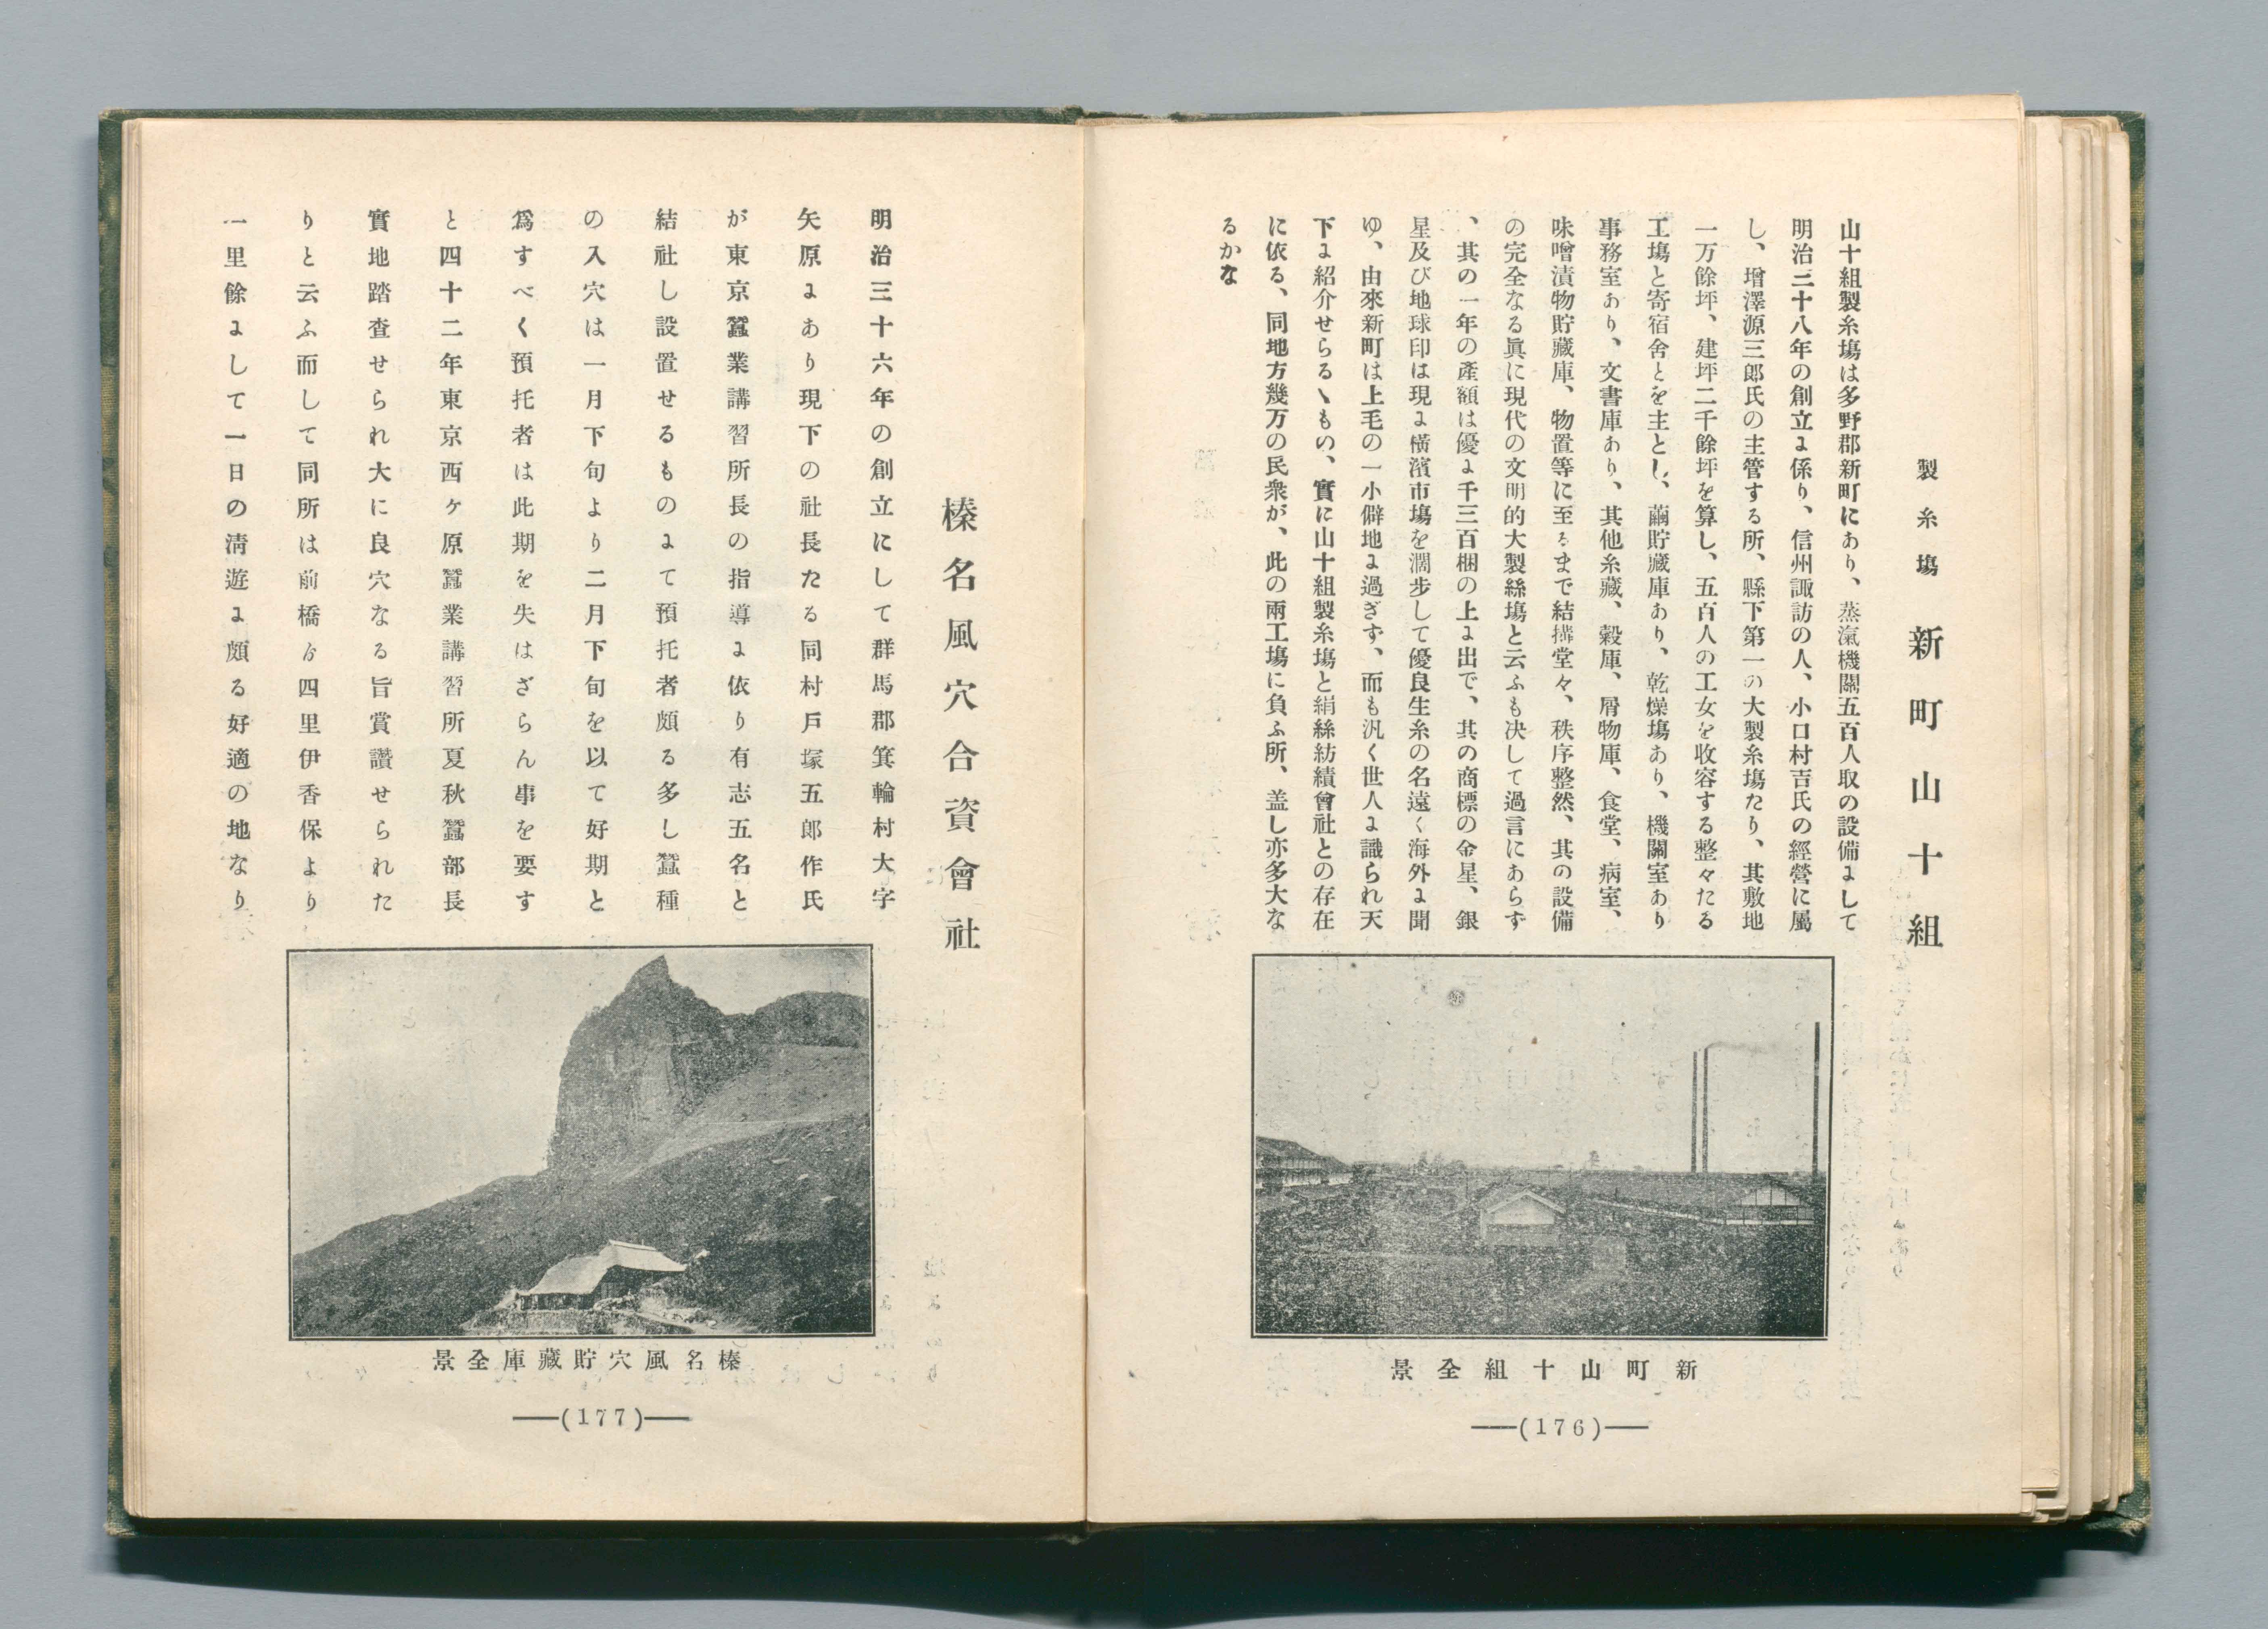 製糸塲 新町山十組
山十組製糸塲は多野郡新町にあり、蒸氣機關五百人取の設備にして
明治三十八年の創立に係り、信州諏訪の人、小口村吉氏の經營に屬
し、增澤源三郎氏の主管する所、縣下第一の大製糸塲たり、其敷地
一万餘坪、建坪二千餘坪を算し、五百人の工女を收容する整々たる
工塲と寄宿舍とを主とし、繭貯藏庫あり、乾燥塲あり、機關室あり
事務室あり、文書庫あり、其他糸藏、穀庫、屑物庫、食堂、病室、
味噌漬物貯藏庫、物置等に至るまで結搆堂々、秩序整然、其の設備
の完全なる眞に現代の文明的大製絲塲と云ふも决して過言にあらず
、其の一年の產額は優に千三百梱の上に出で、其の商標の金星、銀
星及び地球印は現に橫濱市塲を濶步して優良生糸の名遠く海外に聞
ゆ、由來新町は上毛の一小僻地に過ぎず、而も汎く世人に識られ天
下に紹介せらるゝもの、實に山十組製糸塲と絹絲紡績會社との存在
に依る、同地方幾万の民衆が、此の兩工塲に負ふ所、盖し亦多大な
るかな
新町山十組全景
(176)
榛名風穴合資會社
明治三十六年の創立にして群馬郡箕輪村大字
矢原にあり現下の社長たる同村戸塚五郎作氏
が東京蠶業講習所長の指導に依り有志五名と
結社し設置せるものにて預托者頗る多し蠶種
の入穴は一月下旬より二月下旬を以て好期と
爲すべく預托者は此期を失はざらん事を要す
と四十二年東京西ケ原蠶業講習所夏秋蠶部長
實地踏査せられ大に良穴なる旨賞讃せられた
りと云ふ而して同所は前橋ゟ四里伊香保より
一里餘にして一日の淸遊に頗る好適の地なり
榛名風穴貯藏庫全景
(177)